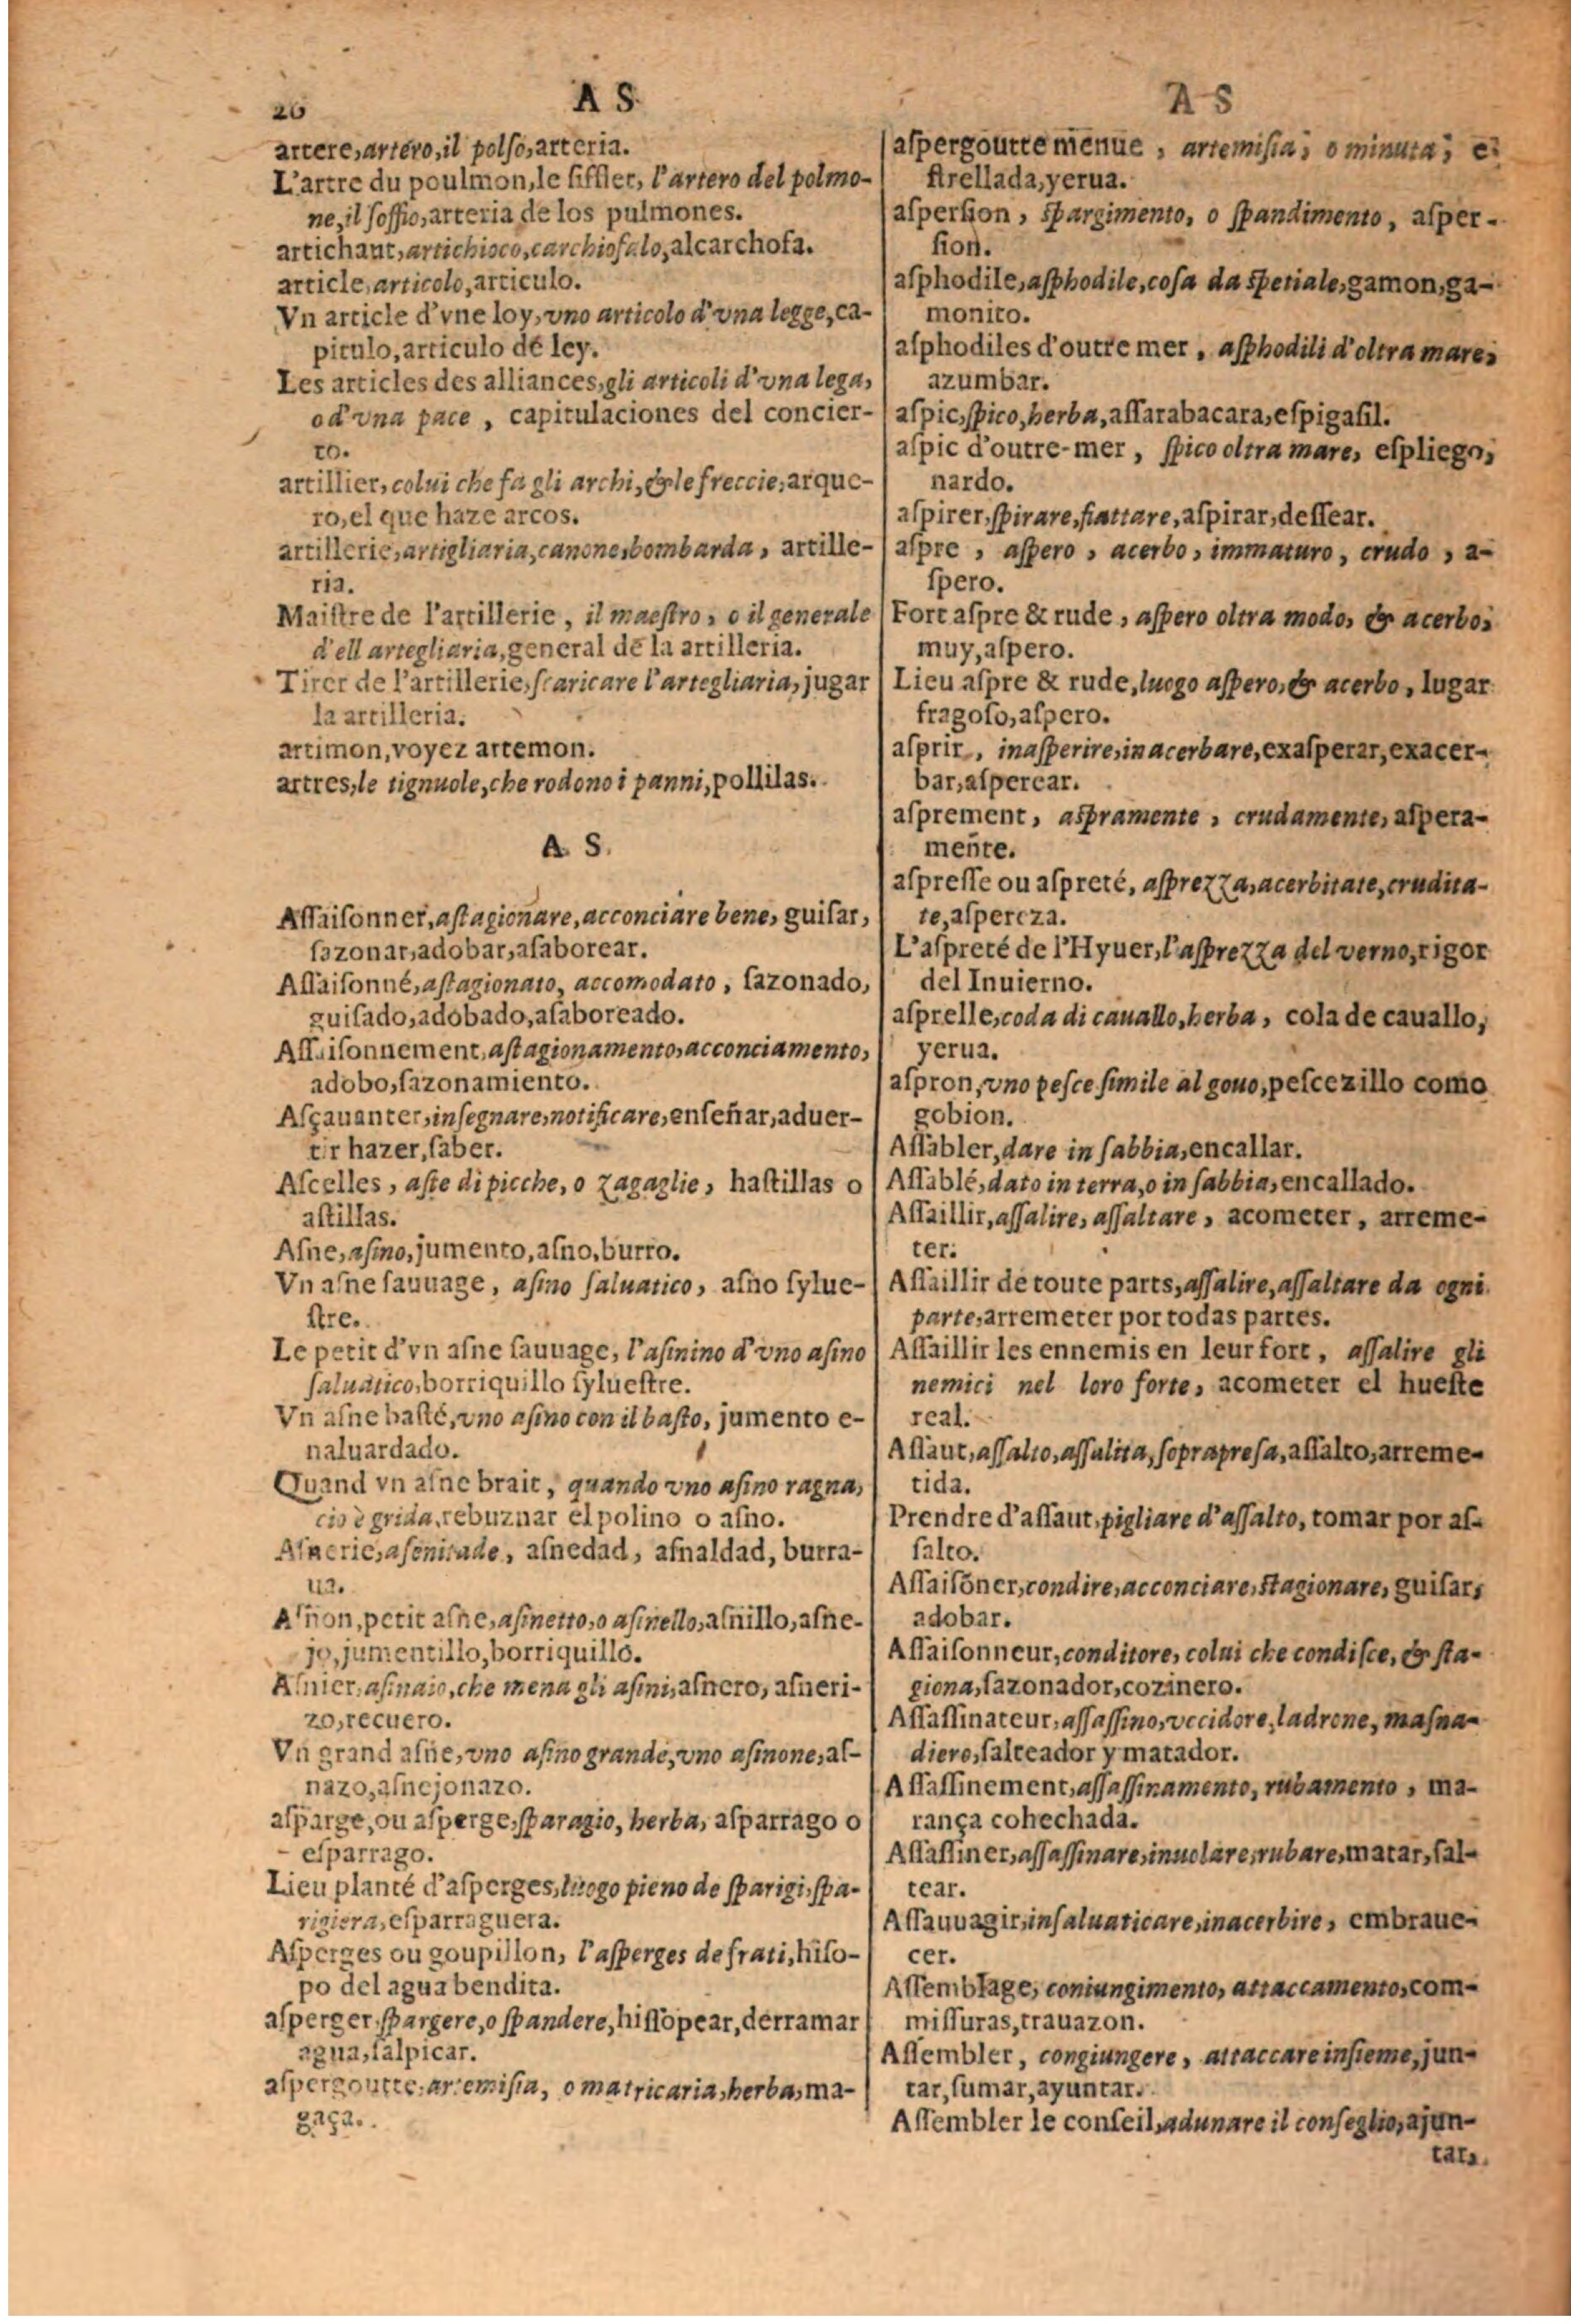 26
A S
A S
artere, artéro, il polſo, arteria.
L'artre du poulmon, le ſifflet, l'artero del polmo-
ne, il ſoffio, arteria de los pulmones.
artichaut, artichioco, carchiofalo, alcarchofa.
article, articolo, articulo.
Vn article d'vne loy, vno articolo d'vna legge, ca-
pitulo, articulo de ley.
Les articles des alliances, gli articoli d'vna lega,
o d'vna pace, capitulaciones del concier-
to.
artillier, colui che fa gli archi, & le freccie, arque-
ro, el que haze arcos.
artillerie, artigliaria, canone, bombarda, artille-
ria.
Maiſtre de l'artillerie, il maeſtro, o il generale
d'ell artegliaria, general de la artilleria.
Tirer de l'artillerie, ſcaricare l'artegliaria, jugar
la artilleria.
artimon, voyez artemon.
artres, le tignuole, che rodono i panni, pollilas.
A. S.
Aſſaiſonner, aſtagionare, acconciare bene, guiſar,
ſazonar, adobar, aſaborear.
Aſſaiſonné, aſtagionato, accomodato, ſazonado,
guiſado, adobado, aſaboreado.
Aſſaiſonnement, aſtagionamento, acconciamento,
adobo, ſazonamiento.
Aſçauanter, inſegnare, notificare, enſeñar, aduer-
tir hazer, ſaber.
Aſcelles, aſte di picche, o zagaglie, haſtillas o
aſtillas.
Aſne, aſino, jumento, aſno, burro.
Vn aſne ſauuage, aſino ſaluatico, aſno ſylue-
ſtre.
Le petit d'vn aſne ſauuage, l'aſinino d'vno aſino
ſaluatico, borriquillo ſylueſtre.
Vn aſne baſté, vno aſino con il baſto, jumento e-
naluardado.
Quand vn aſne brait, quando vno aſino ragna,
cio è grida, rebuznar el polino o aſno.
Aſnerie, aſenitade, aſnedad, aſnaldad, burra-
ua.
Aſnon, petit aſne, aſinetto, o aſinello, aſnillo, aſne-
jo, jumentillo, borriquillo.
Aſnier, aſinaio, che mena gli aſini, aſnero, aſneri-
zo, recuero.
Vn grand aſne, vno aſino grande, vno aſinone, aſ-
nazo, aſnejonazo.
aſparge, ou aſperge, ſparagio, herba, aſparrago o
eſparrago.
Lieu planté d'aſperges, luogo pieno de ſparigi, ſpa-
rigiera, eſparraguera.
Aſperges ou goupillon, l'aſperges de frati, hiſo-
po del agua bendita.
aſperger, ſpargere, o ſpandere, hiſſopear, derramar
agua, ſalpicar.
aſpergoutte, artemiſia, o matricaria, herba, ma-
gaça.
aſpergoutte menue, artemiſia, o minuta, e-
ſtrellada, yerua.
aſperſion, ſpargimento, o ſpandimento, aſper-
ſion.
aſphodile, aſphodile, coſa da ſpetiale, gamon, ga-
monito.
aſphodiles d'outre mer, aſphodili d'oltra mare,
azumbar.
aſpic, ſpico, herba, aſſarabacara, eſpigaſil.
aſpic d'outre-mer, ſpico oltra mare, eſpliego,
nardo.
aſpirer, ſpirare, fiattare, aſpirar, deſſear.
aſpre, aſpero, acerbo, immaturo, crudo, a-
ſpero.
Fort aſpre & rude, aſpero oltra modo, & acerbo,
muy, aſpero.
Lieu aſpre & rude, luogo aſpero, & acerbo, lugar
fragoſo, aſpero.
aſprir, inaſperire, inacerbare, exaſperar, exacer-
bar, aſperear.
aſprement, aſpramente, crudamente, aſpera-
mente.
aſpreſſe ou aſpreté, aſprezza, acerbitate, crudita-
te, aſpereza.
L'aſpreté de l'Hyuer, l'aſprezza del verno, rigor
del Inuierno.
aſprelle, coda di cauallo, herba, cola de cauallo,
yerua.
aſpron, vno peſce ſimile al gouo, peſcezillo como
gobion.
Aſſabler, dare in ſabbia, encallar.
Aſſablé, dato in terra, o in ſabbia, encallado.
Aſſaillir, aſſalire, aſſaltare, acometer, arreme-
ter.
Aſſaillir de toute parts, aſſalire, aſſaltare da ogni
parte, arremeter por todas partes.
Aſſaillir les ennemis en leur fort, aſſalire gli
nemici nel loro forte, acometer el hueſte
real.
Aſſaut, aſſalto, aſſalita, ſoprapreſa, aſſalto, arreme-
tida.
Prendre d'aſſaut, pigliare d'aſſalto, tomar por aſ-
ſalto.
Aſſaiſõner, condire, acconciare, ſtagionare, guiſar,
adobar.
Aſſaiſonneur, conditore, colui che condiſce, & ſta-
giona, ſazonador, cozinero.
Aſſaſſinateur, aſſaſſino, vccidore, ladrone, maſna-
diero, ſalteador y matador.
Aſſaſſinement, aſſaſſinamento, rubamento, ma-
rança cohechada.
Aſſaſſiner, aſſaſſinare, inuolare, rubare, matar, ſal-
tear.
Aſſauuagir, inſaluaticare, inacerbire, embraue-
cer.
Aſſemblage, coniungimento, attaccamento, com-
miſſuras, trauazon.
Aſſembler, congiungere, attaccare inſieme, jun-
tar, ſumar, ayuntar.
Aſſembler le conſeil, adunare il conſeglio, ajun-
tar,